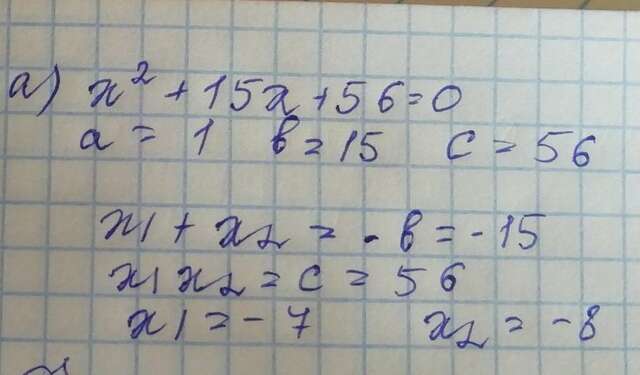 а) x² + 15x + 56 = 0
a = 1 в = 15 c = 56
x1 + x2 = - в = - 15
x1 x2 = c = 56
x1 = - 7 x2 = - 8